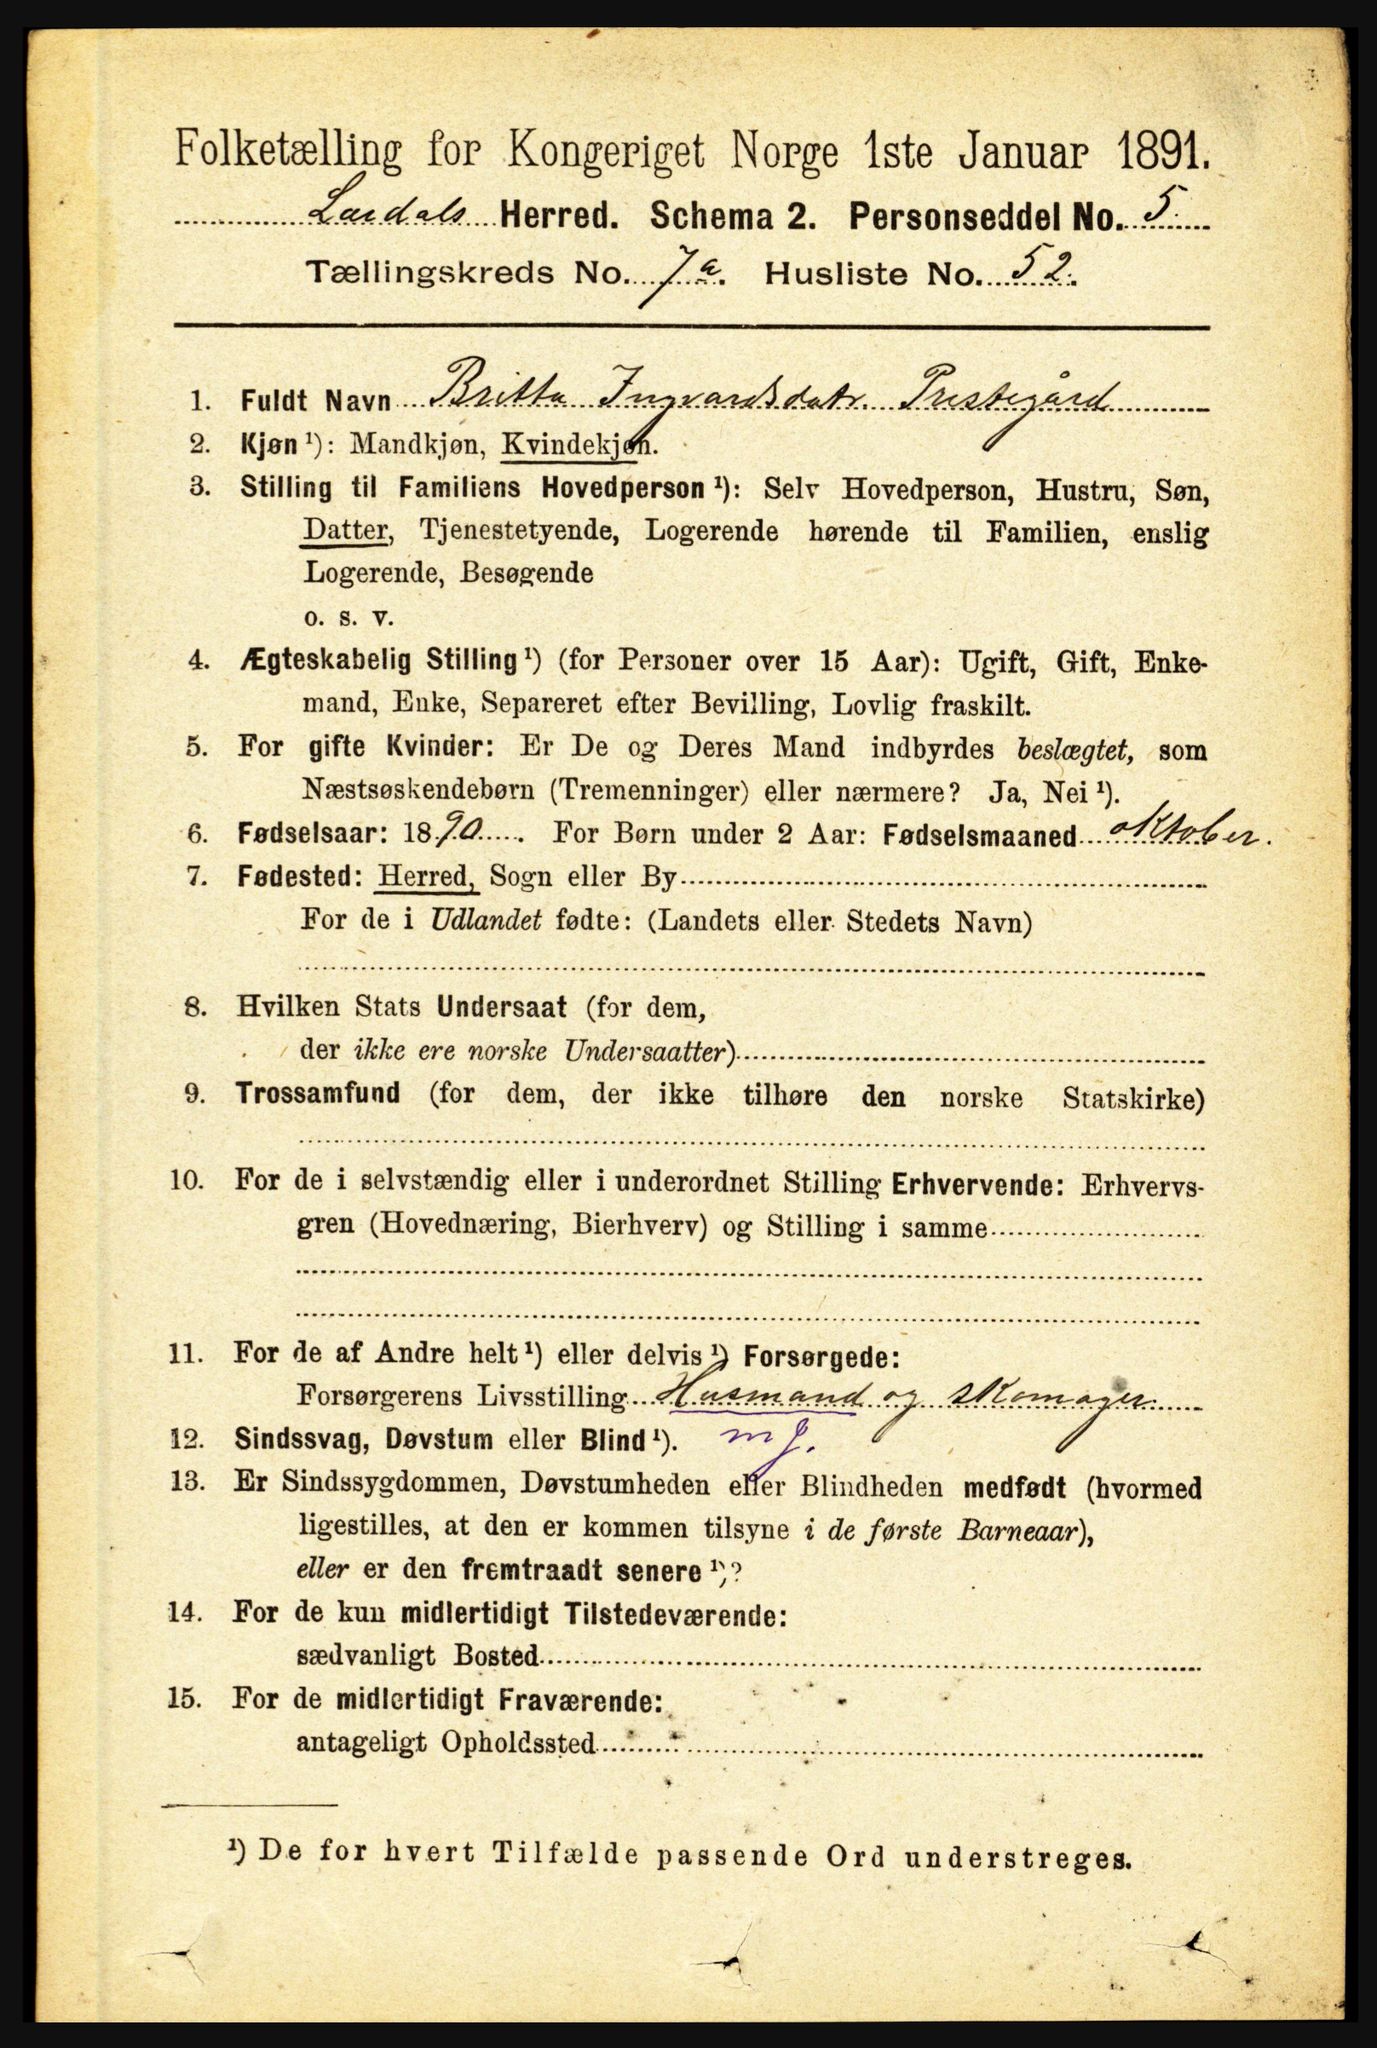 Folketælling for Kongeriget Norge 1ste Januar 1891.
Lærdals Herred. Schema 2. Personseddel No. 5.
Tællingskreds No. 7a. Husliste No. 52.
1. Fuldt Navn Britta Ingvardsdatr. Prestegård
2. Kjøn ¹): Mandkjøn, Kvindekjøn.
3. Stilling til Familiens Hovedperson ¹): Selv Hovedperson, Hustru, Søn,
Datter, Tjenestetyende, Logerende hørende til Familien, enslig
Logerende, Besøgende
o. s. v.
4. Ægteskabelig Stilling ¹) (for Personer over 15 Aar): Ugift, Gift, Enke-
mand, Enke, Separeret efter Bevilling, Lovlig fraskilt.
5. For gifte Kvinder: Er De og Deres Mand indbyrdes beslægtet, som
Næstsøskendebørn (Tremenninger) eller nærmere? Ja, Nei ¹).
6. Fødselsaar: 1890. For Børn under 2 Aar: Fødselsmaaned oktober.
7. Fødested: Herred, Sogn eller By
For de i Udlandet fødte: (Landets eller Stedets Navn)
8. Hvilken Stats Undersaat (for dem,
der ikke ere norske Undersaatter)
9. Trossamfund (for dem, der ikke tilhøre den norske Statskirke)
10. For de i selvstændig eller i underordnet Stilling Erhvervende: Erhvervs-
gren (Hovednæring, Bierhverv) og Stilling i samme
11. For de af Andre helt ¹) eller delvis ¹) Forsørgede:
Forsørgerens Livsstilling Husmand og skomager
12. Sindssvag, Døvstum eller Blind ¹). mj.
13. Er Sindssygdommen, Døvstumheden eller Blindheden medfødt (hvormed
ligestilles, at den er kommen tilsyne i de første Barneaar),
eller er den fremtraadt senere ¹)?
14. For de kun midlertidigt Tilstedeværende:
sædvanligt Bosted
15. For de midlertidigt Fraværende:
antageligt Opholdssted
¹) De for hvert Tilfælde passende Ord understreges.